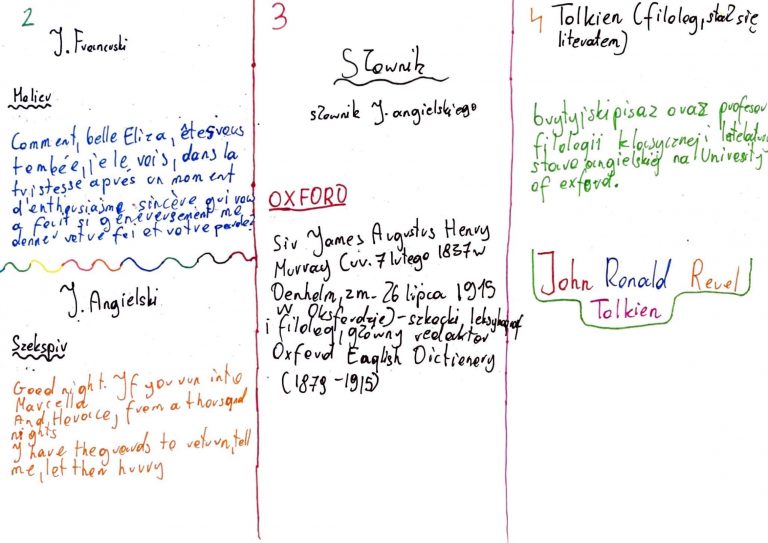 2
J. Francuski
Molier
Comment, belle Eliza, êtes vous
tombée, je le vois, dans la
tristesse aprués un moment
d'enthousiajme sincère qui vous
a fait si généreusement me
donner votre foi et votre parole?
J. Angielski
Szekspir
Good night. If you run into
Marcella
And, Horacce, from a thousand
nights
I have the guards to return, tell
me, let then hurry
3
Słownik
słownik J. angielskiego
OXFORD
Sir James Augustus Henry
Murray (ur. 7 lutego 1837 w
Denholm, zm. 26 lipca 1915
w Oksfordzie) - szkocki leksykograf
i filolog, główny redaktor
Oxford English Dictionery
(1879-1915)
4 Tolkien (filolog, stał się
literatem)
brytyjski pisaz oraz profesor
filologii klasycznej i literatury
staro angielskiej na University
of exford.
John Ronald Reuel
Tolkien